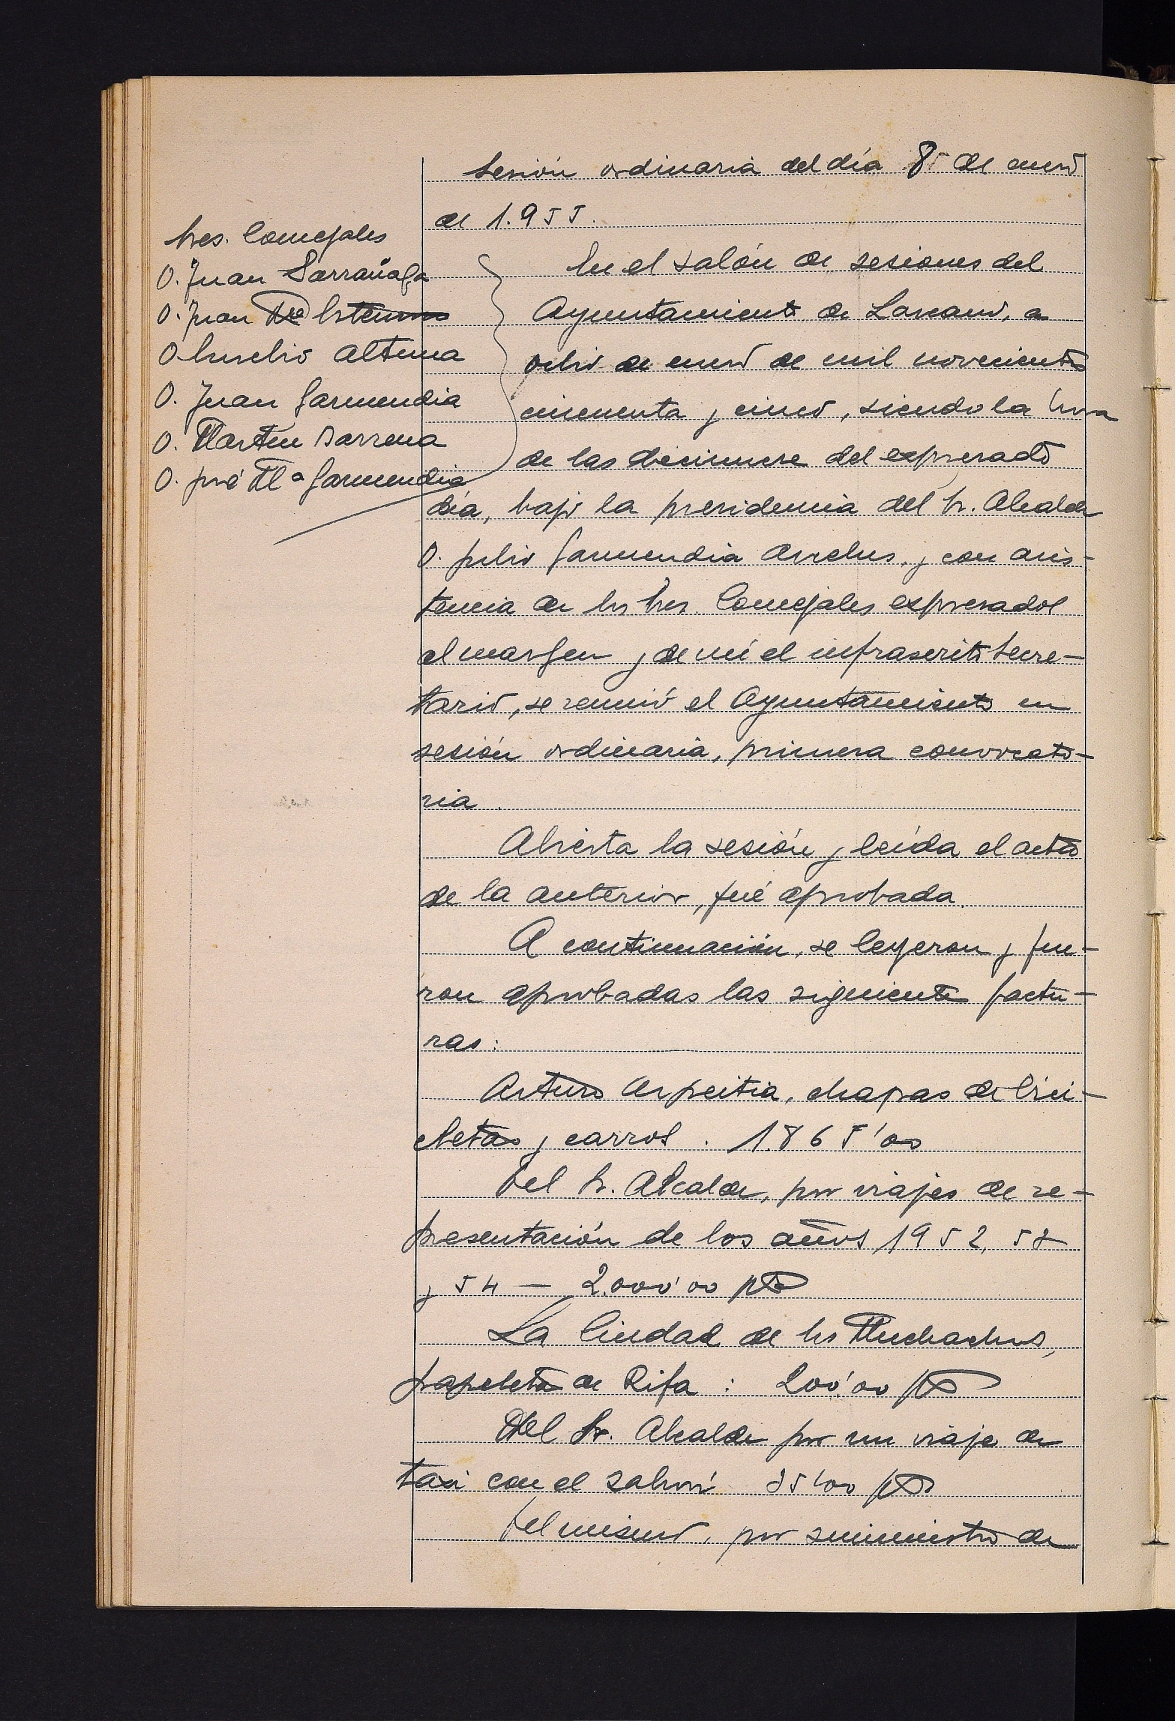 Sesión ordinaria del día 8 de enero
de 1.955.
Sres. Concejales
D. Juan Larrañaga
D. Juan
D. Eusebio Altuna
D. Juan Garmendia
D. Martin Barrena
D. José Mª Garmendia
En el salón de sesiones del
Ayuntamiento de Lazcano, a
ocho de enero de mil novecientos
cincuenta y cinco, siendo la hora
de las diecinueve del expresado
día, bajo la presidencia del Sr. Alcalde
D. Julio Garmendia y con asis-
tencia de los Sres Concejales expresados
al margen y de mí el infrascrito Secre-
tario, se reunió el Ayuntamiento en
sesión ordinaria, primera convocato-
ria.
Abierta la sesión y leída el acta
de la anterior, fué aprobada.
A continuación, se leyeron y fue-
ron aprobadas las siguientes factu-
ras:
Arturo Azpeitia, chapas de bici-
cletas y carros. 1.865'00
Del Sr. Alcalde, por viajes de re-
presentación de los años 1952, 53
y 54 — 2.000'00 pts
La Ciudad de los Muchachos,
papeleta de Rifa: 200'00 pts
Del Sr. Alcalde por un viaje de
taxi con el pts
Del mismo, por suministro de